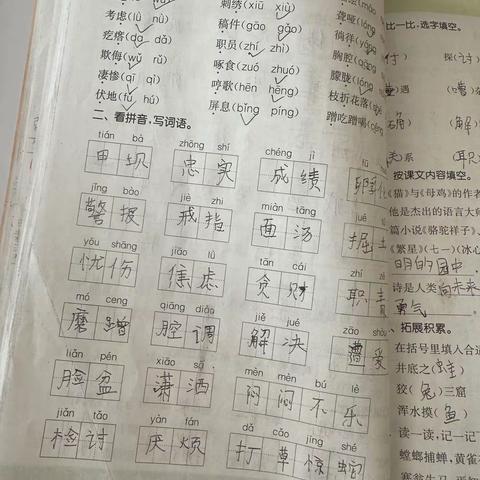 考虑(lǜ nǜ) 刺绣(xiū xiù)
疙瘩(da dǎ) 稿件(gāo gǎo)
欺侮(wǔ rǔ) 职员(zhí zhì) 徜徉(
凄惨(qī qì) 啄食(zuó zhuó) 胸腔(qiāng
伏地(fú hú) 哼歌(hēn hēng) 朦胧(lóng
屏息(bǐng píng) 枝折花落(
蹭吃蹭喝(
二、看拼音,写词语。
tián bà zhōng shí chéng jì
田 坝 忠 实 成 绩
jǐng bào jiè zhǐ miàn tāng jué
警 报 戒 指 面 汤 掘
yōu shāng jiāo lǜ tān cái zhí
忧 伤 焦 虑 贪 财 职
mó ceng qiāng diào jiě jué zāo
磨 蹭 腔 调 解 决 遭 受
liǎn pén xiāo sǎ mèn mèn bú lè
脸 盆 潇 洒 闷 闷 不 乐
jiǎn tǎo yàn fán dǎ cǎo jīng shé
检 讨 厌 烦 打 草 惊 蛇
比一比,选字填空。
付( ) 探(讨)
遇
(解)
关系
按课文内容填空。
《猫》与《母鸡》的作者
他是杰出的语言大师
篇小说《骆驼祥子》、
《繁星》(七一)(冰心
明的园中
诗是人类向未来
勇气
、拓展积累。
在括号里填人合适
井底之(蛙)
狡(兔)三窟
浑水摸(鱼)
读一读,记一记
螳螂捕蝉,黄雀
塞翁失马